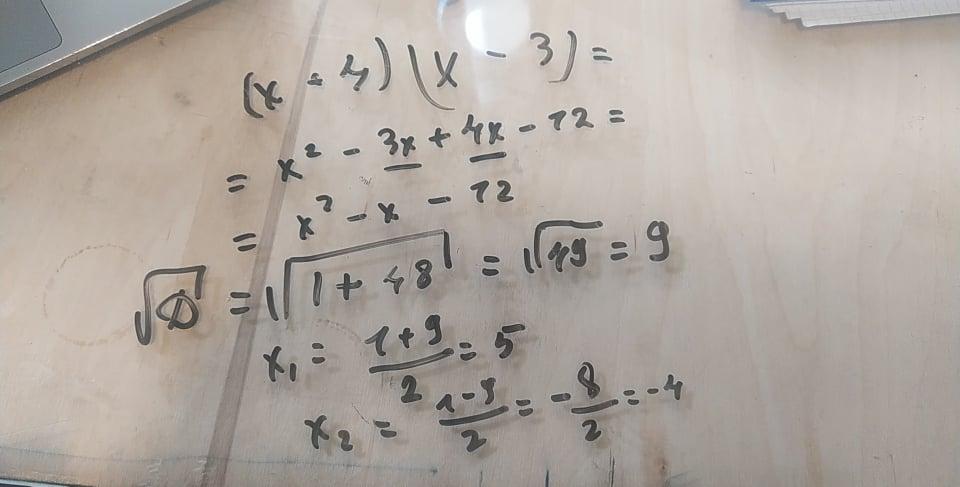 (x - 4) (x - 3) =
= x² - 3x + 4x - 12 =
= x² - x - 12
√D = √1 + 48 = √49 = 9
x₁ = 1+9/2 = 5
x₂ = 1-9/2 = -8/2 = -4